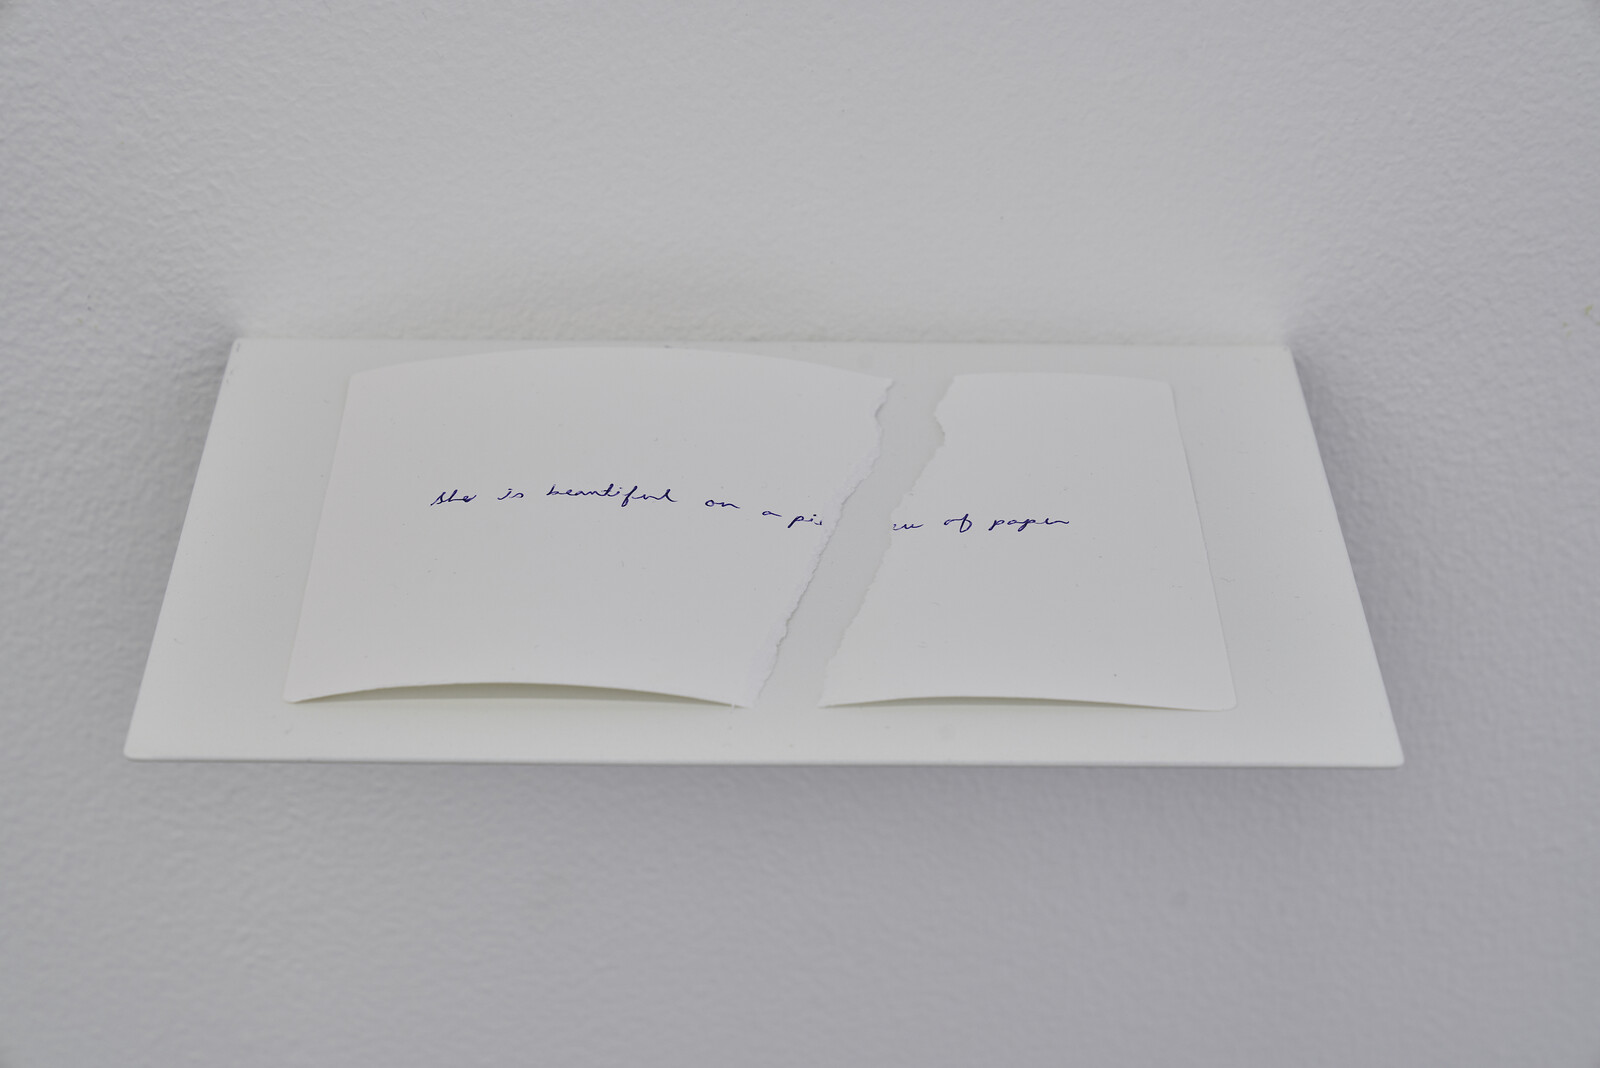 she is beautiful on a pi ce of paper